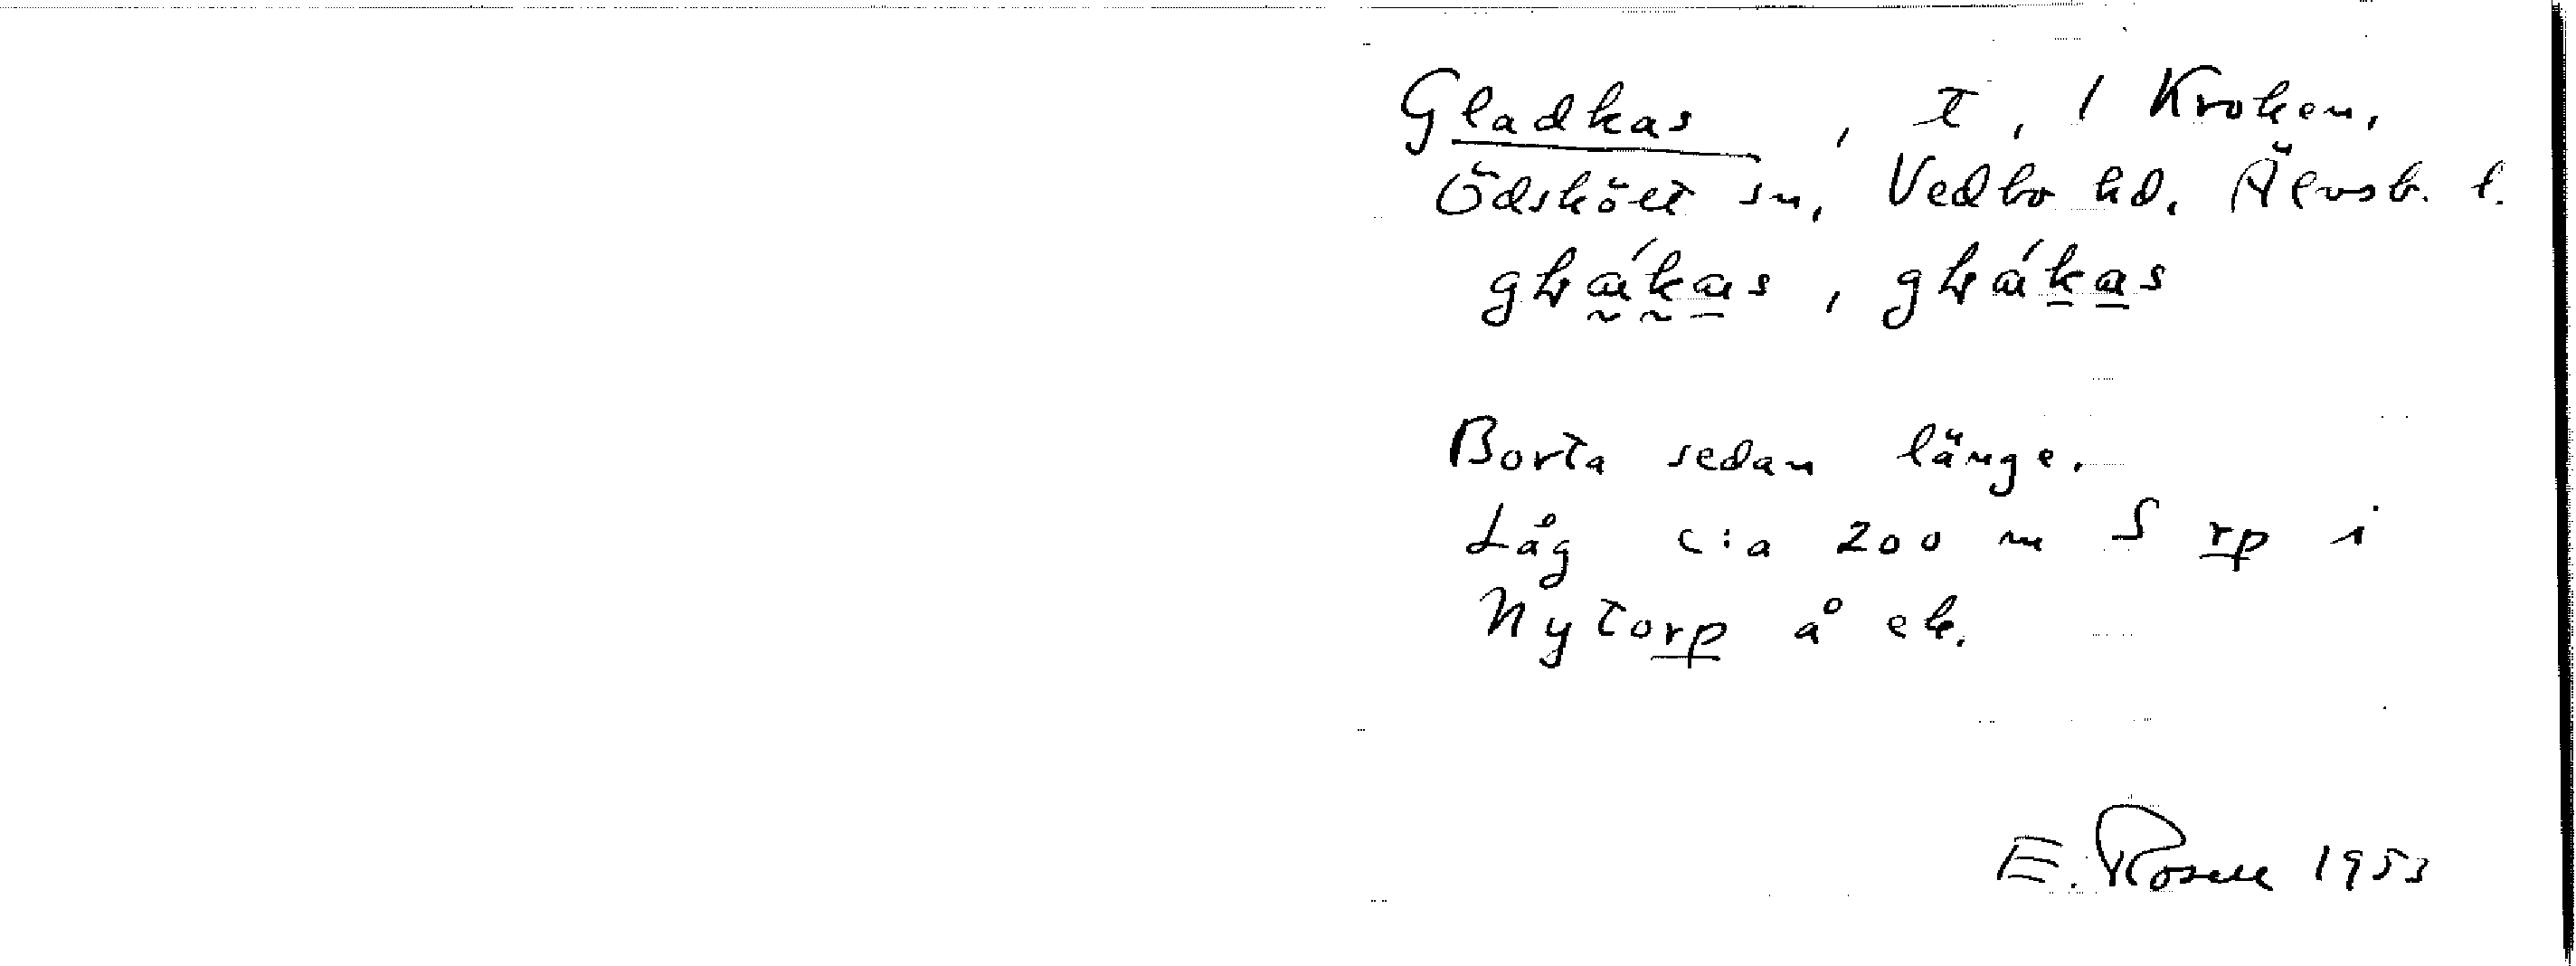 Gladkas, t, 1 Kroken,
Ödskölt sn, Vedbo hd, Älvsb. l.
Borta sedan länge.
Låg c:a 200 m S rp i
Nytorp å ek.
E. Rosell 1953